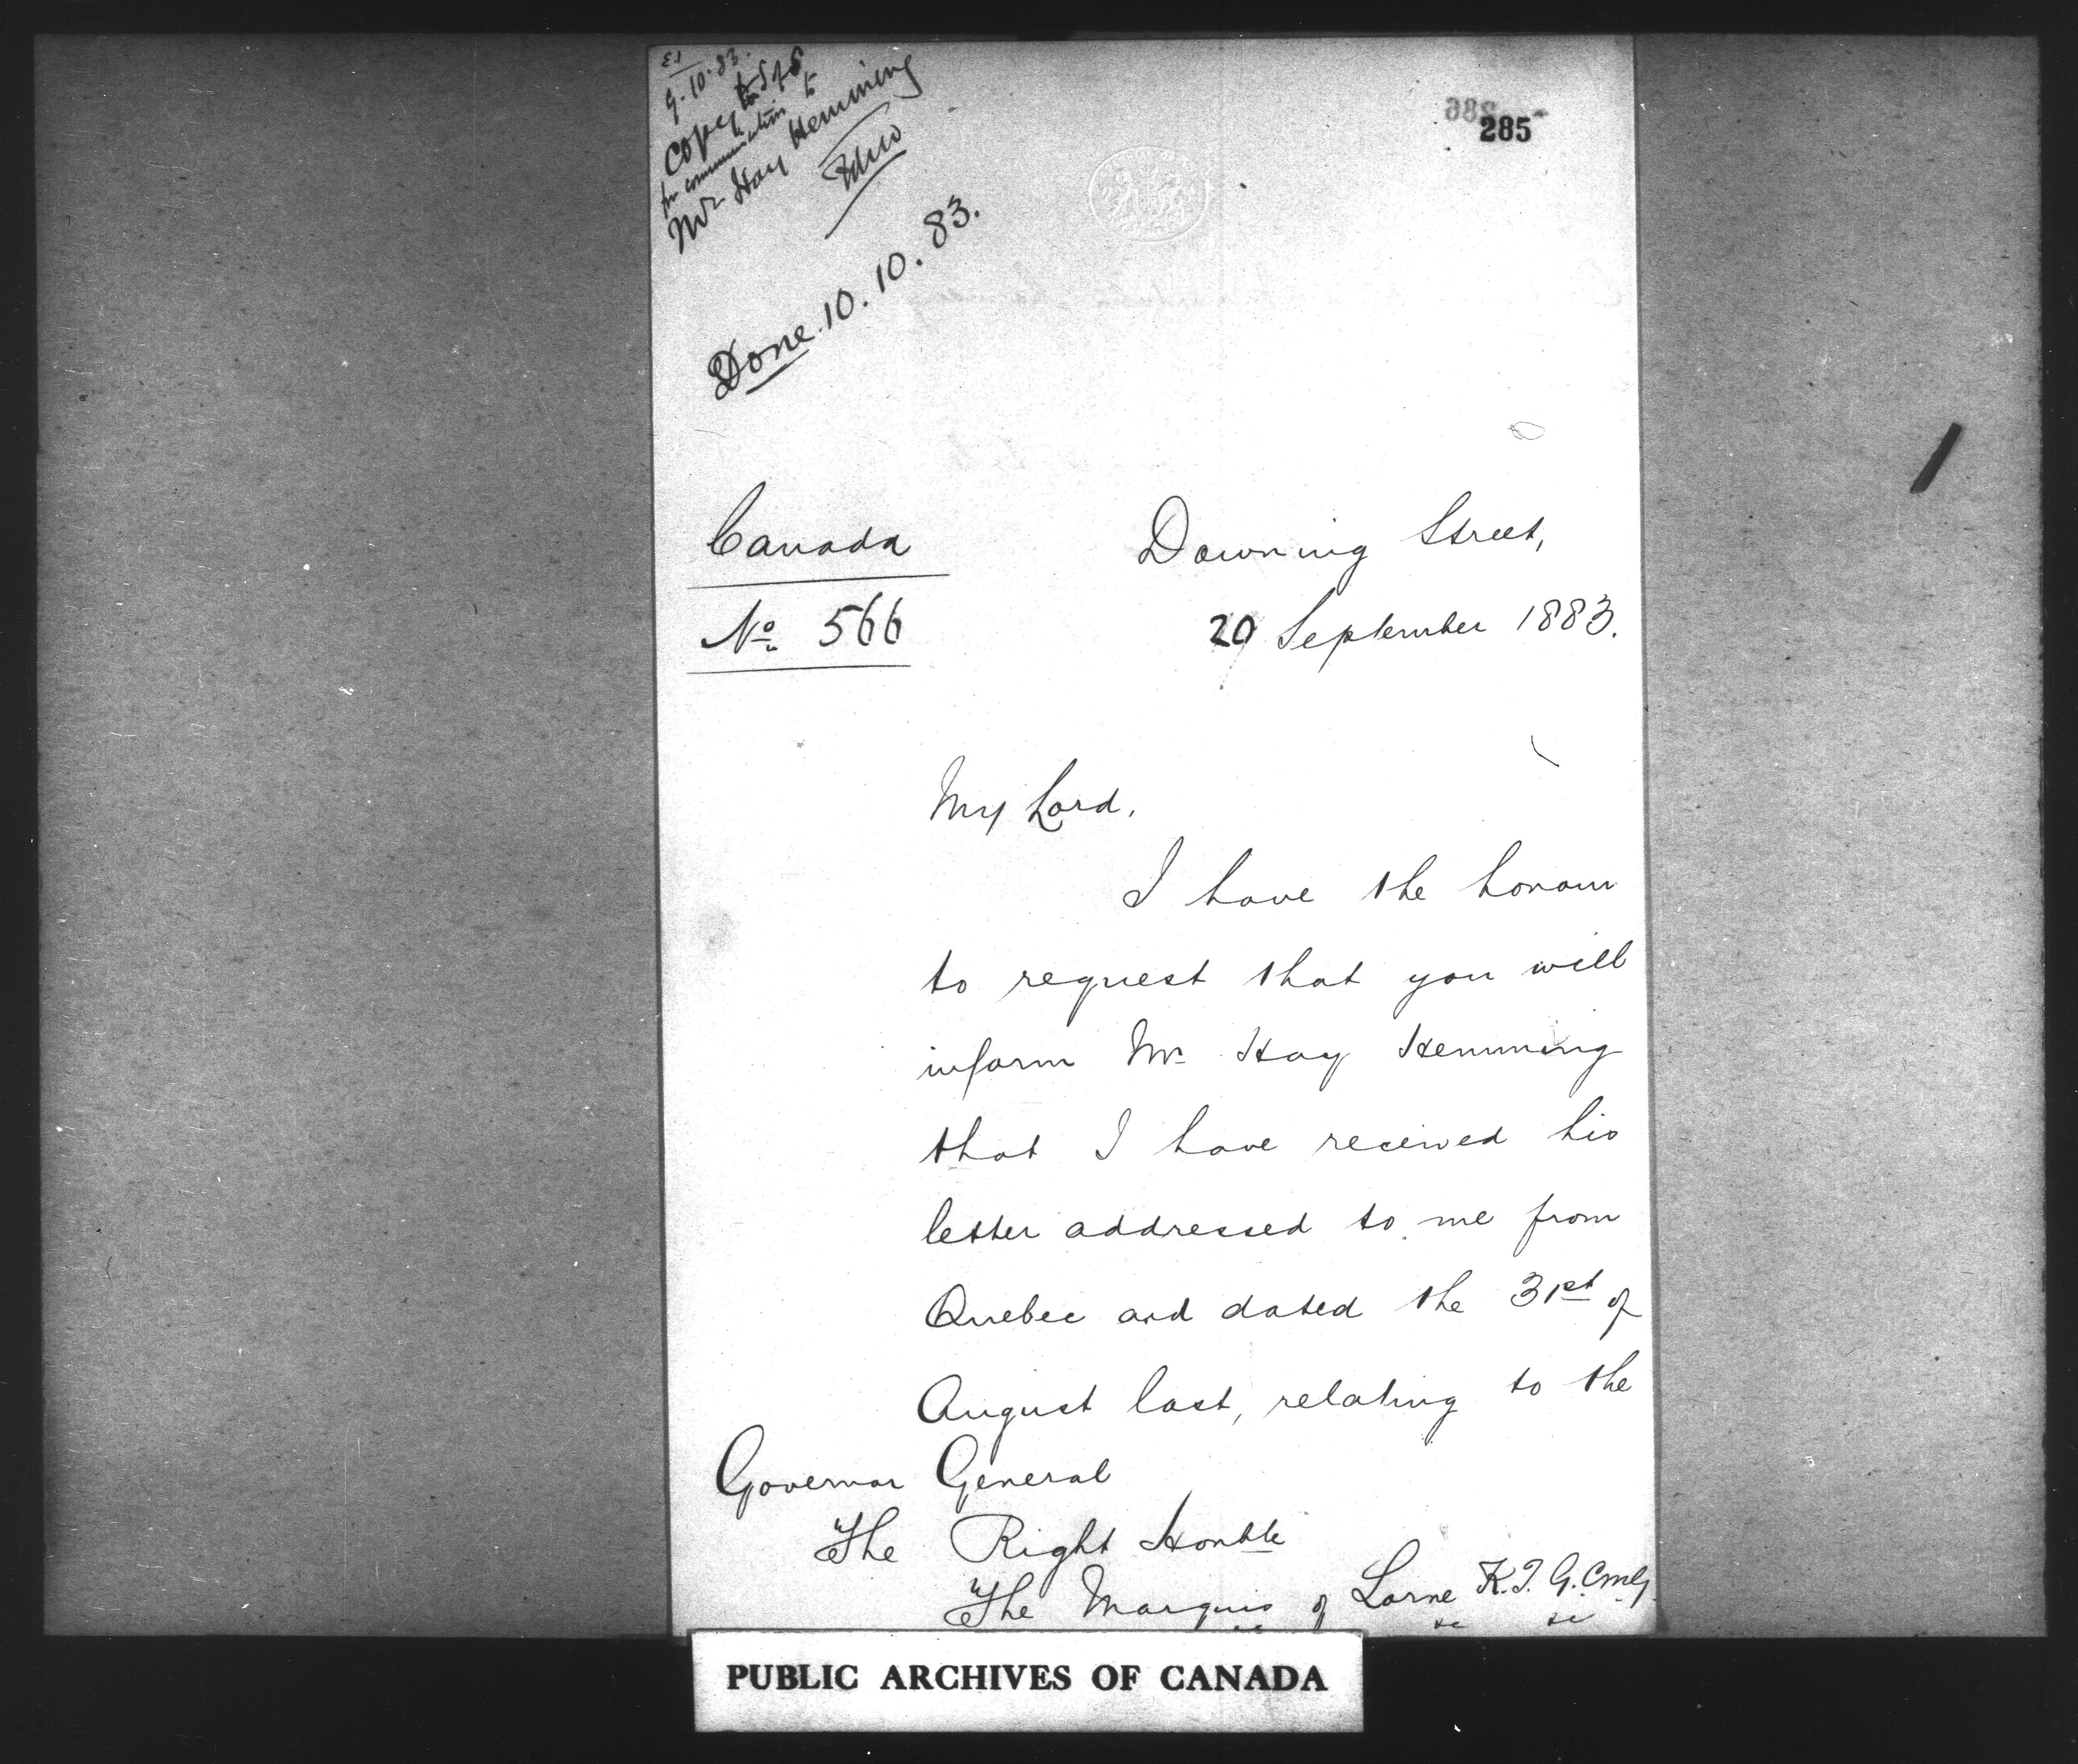 9.10.83.
Copy to S of S
for communication to
Mr Hay Hemming
Done. 10.10.83.
285
Canada
No 566
Downing Street,
20 September 1883.
My Lord,
I have the honour
to request that you will
inform Mr Hay Hemming
that I have received his
letter addressed to me from
Quebec and dated the 31st of
August last, relating to the
Governor General
The Right Honble
The Marquis of Lorne K.T. G.C.M.G.
&c &c &c
PUBLIC ARCHIVES OF CANADA